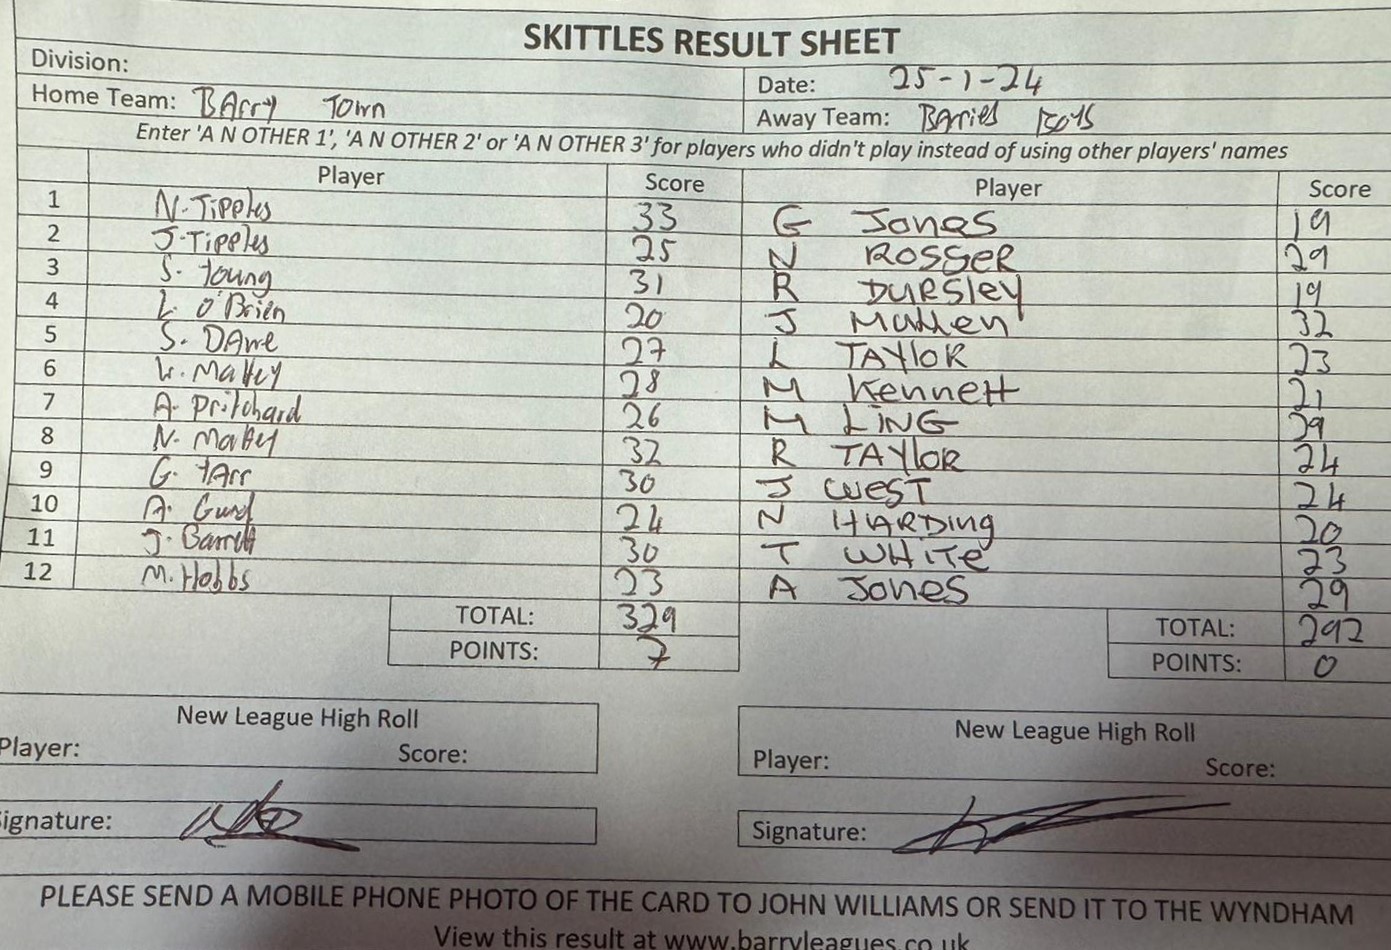 SKITTLES RESULT SHEET
Division: Date: 25-1-24
Home Team: BArry Town Away Team: Barries Boys
Enter 'A N OTHER 1', 'A N OTHER 2' or 'A N OTHER 3' for players who didn't play instead of using other players' names
Player Score Player Score
1 N. Tipples 33 G Jones 19
2 J. Tipples 25 N ROSSER 29
3 S. Young 31 R DURSLEY 19
4 L. O'Brien 20 J Mullen 32
5 S. DAwe 27 L TAYLOR 23
6 28 M Kennett 21
7 A. Pritchard 26 M LiNG 29
8 N. 32 R TAYLOR 24
9 G. TArr 30 J WEST 24
10 A. 24 N HARDing 20
11 J. Barrett 30 T WHiTe 23
12 M. Hobbs 23 A Jones 29
TOTAL: 329 TOTAL: 292
POINTS: 7 POINTS: 0
New League High Roll New League High Roll
Player: Score: Player: Score:
Signature: Signature:
PLEASE SEND A MOBILE PHONE PHOTO OF THE CARD TO JOHN WILLIAMS OR SEND IT TO THE WYNDHAM
View this result at www.barryleagues.co.uk